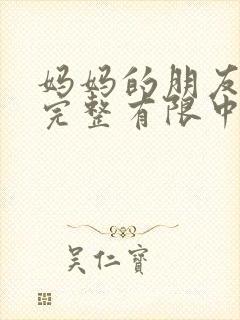 妈妈的朋友
完整有限中
吴仁宝